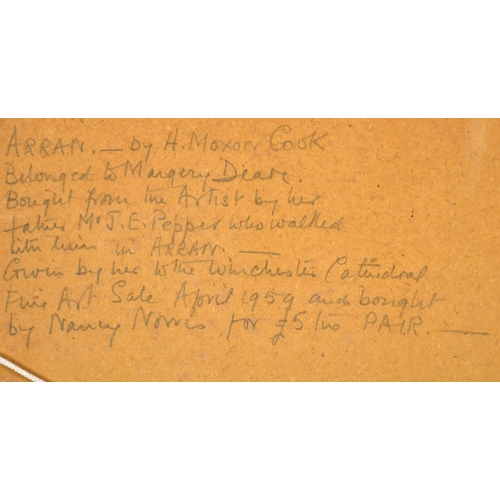 ARRAN. — by H. Moxon Cook
Belonged to Margery Deare.
Bought from the Artist by her
father Mr J. E. Pepper who walked
with him in ARRAN. —
Given by her to the Winchester Cathedral
Fine Art Sale April 1959 and bought
by Nancy Norris for £5 the PAIR. —